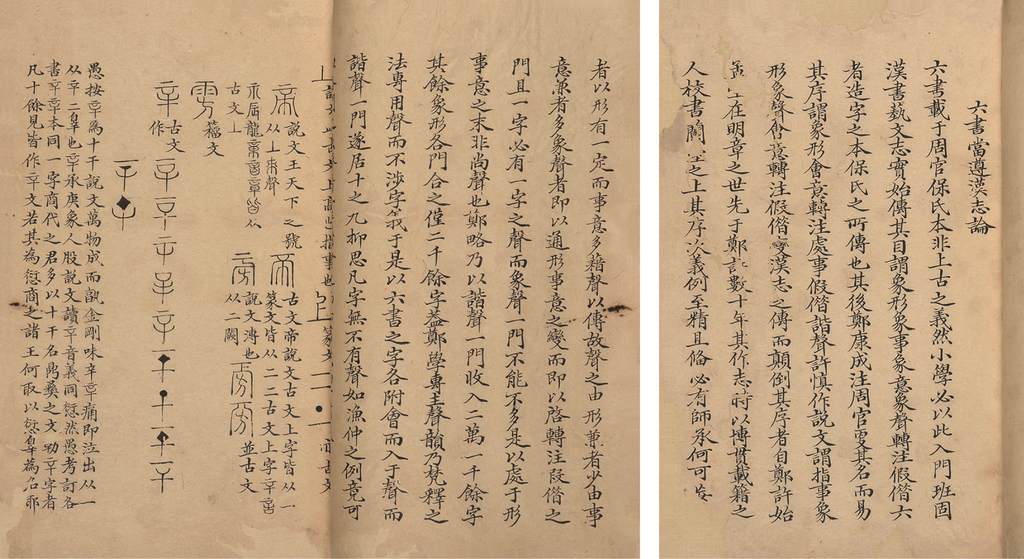 六書當遵漢志論
六書載于周官保氏本非上古之義然小學必以此入門班固
漢書藝文志實始傳其目謂象形象事象意象聲轉注假借六
者造字之本保氏之所傳也其後鄭康成注周官更其名而易
其序謂象形會意轉注處事假借諧聲許慎作說文謂指事象
形象聲會意轉注假借實漢志之傳而顛倒其序者自鄭許始
孟堅在明章之世先于鄭許數十年其作志時以博貫載籍之
人校書蘭臺之上其序次義例至精且備必有師承何可
者以形有一定而事意多藉聲以傳故聲之由形兼者少由事
意兼者多象聲者即以通形事意之變而即以啓轉注叚借之
門且一字必有一字之聲而象聲一門不能不多是以處于形
事意之末非尚聲也鄭略乃以諧聲一門收入二萬一千餘字
其餘象形各門合之僅二千餘字葢鄭學專主聲韻乃梵釋之
法專用聲而不涉字義于是以六書之字各附會而入于聲而
諧聲一門遂居十之九抑思凡字無不有聲如漁仲之例竟可
帝 說文王天下之號
从丄朿聲
古文帝說文古文上字皆从一
篆文皆从二二古文上字辛
古文丄
說文溥也
从二闕
並古文
籒文
辛 古文
作
愚按辛為十干說文萬物成而孰金剛味辛辛痛即泣出从一
从䇂䇂辠也辛承庚象人股說文讀辛音義同愆然愚考訂各
書辛䇂本同一字商代之君多以十干名禼彝之文勒辛字者
凡十餘見皆作辛文若其為愆商之諸王何取以愆辠為名耶